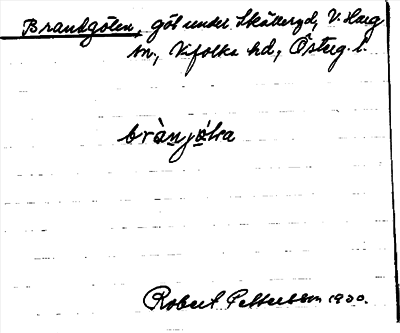 Brandgölen, göl under Skällergd, V. Harg
sn, Vifolka hd, Österg. l.
brànjö̀lṇa
Robert Pettersson 1930.